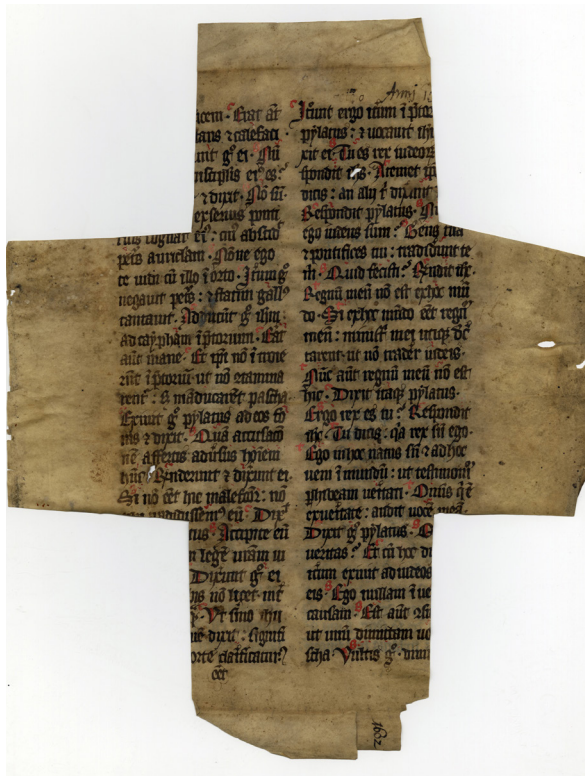 Anni 16
icem. Erat aūt
lans ⁊ calefaci
unt gͦ ei. Nū
⁊ dixit. Nō sū.
ex seruis ponti
piis auriclam. Nōne ego
te uidi cū illo ī orto. Iterū gͦ
negauit petrͦ: ⁊ statim gallͦ
cantauit. Adducūt gͦ ihm
ad caypham ī ptorium. Erat
aūt mane. Et ipi nō ītroie
rūt ī ptoriū ut nō ɔtamina
rentͬ. S; māducarēt pascha.
Exiuit gͦ pylatus ad eos fo
ras ⁊ dixit. Quā accusacō
nē affertis aduersus hoiem
hūc? Rnderunt ⁊ dixerūt ei.
Si nō eēt hic malefcōr: nō
tradidissemͦ eū. Dixit
Accipite eū
legē urām iu
Dixerunt gͦ ei
nō licet int
Ut smo ihu
dixit: signifi
morte clarificaturͦ
eēt
Iterunt ergo iterū ī ptor
pylatus: ⁊ uocauit ihm
xit ei. Tu es rex iudeor
spondit ihs. A temet ip
dicis: an alij t dixerunt
Respondit pylatus. Nū
ego iudeus sum? Gens tua
⁊ pontifices tui: tradiderūt te
m. Quid fecisti? Rndit ihc.
Regnū meū nō est ex hoc mū
do. Si ex hoc mūdo eēt regnū
meū: ministri mei utiqͣ dc̄
tarent ut nō traderer iudeis.
Nūc aūt regnū meū nō est
hic. Dixit itaqͣ pylatus.
Ergo rex es tu? Respondit
ihc. Tu dicis: qͣa rex sū ego.
Ego in hoc natus sū ⁊ ad hoc
ueni ī mundū: ut testimoniū
phibeam ueritati. Omīs qͣ ē
ex ueritate: audit uocē meā.
Dixit gͦ pylatus. Q
ueritas? Et cū hoc di
iterum exiuit ad iudeos
eis. Ego nullam ī ue
causam. Est aūt ɔsu
ut unū dimittam uo
scha. Vultis gͦ dimi
1632